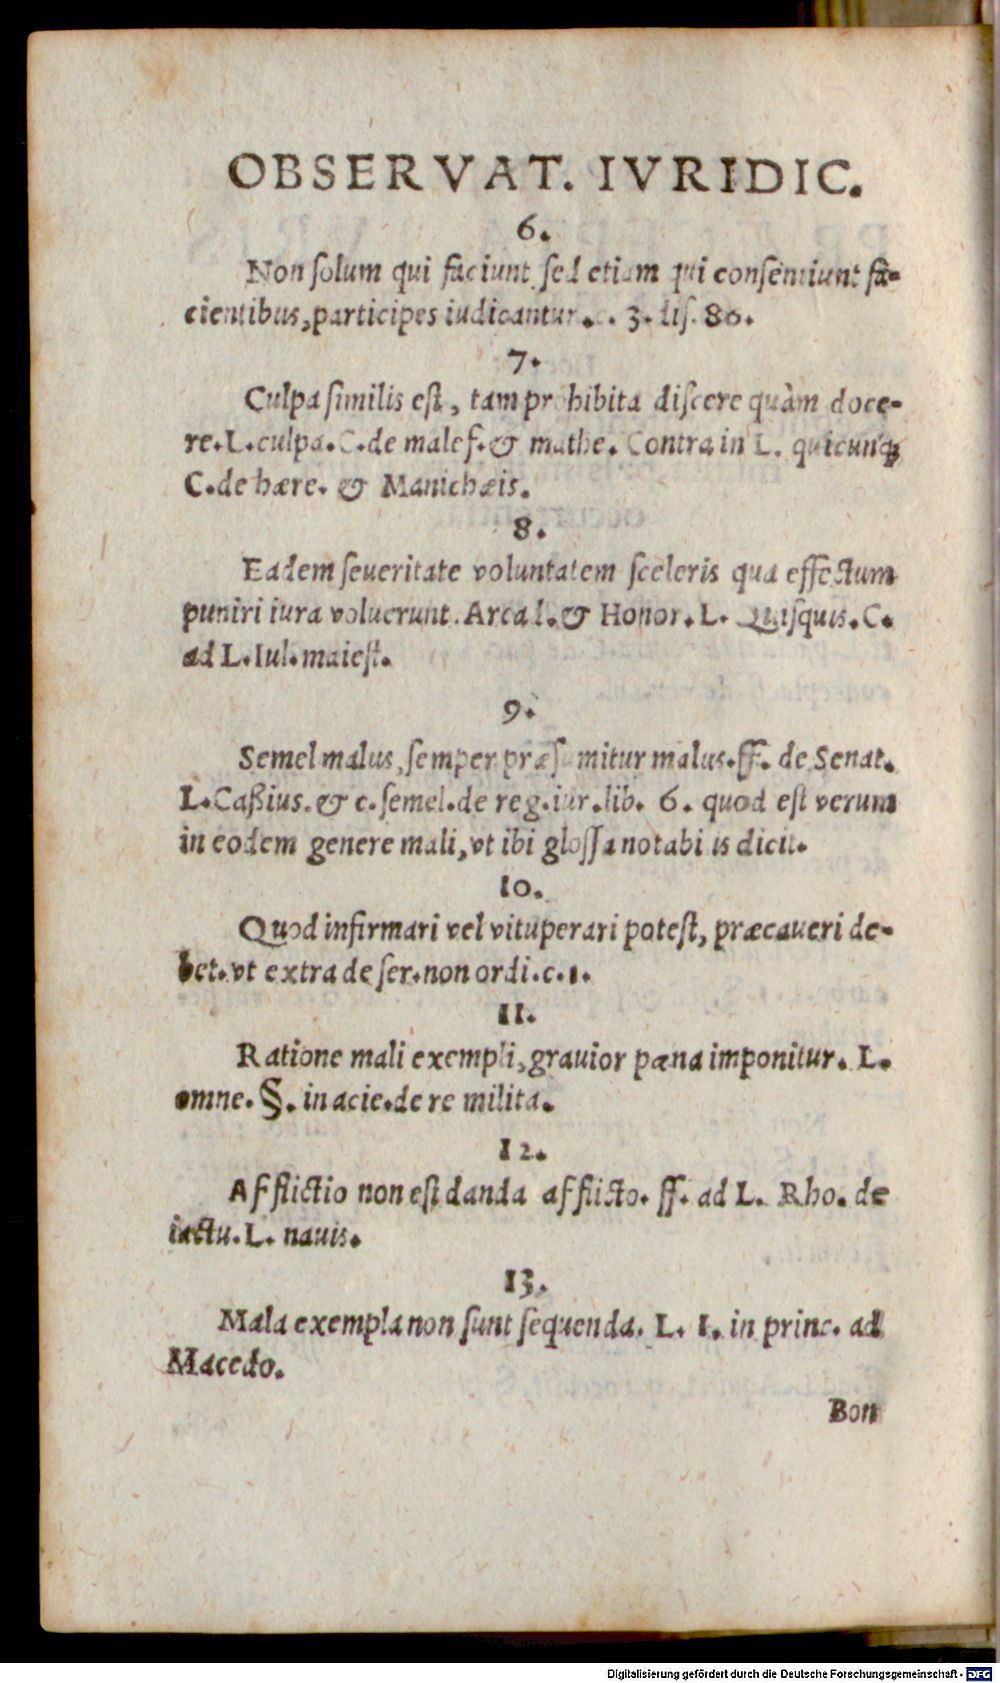 OBSERVAT. IVRIDIC.
6.
Non ſolum qui faciunt ſed etiam qui conſentiunt fa-
cientibus, participes iudicantur. . 3. diſ. 86.
7.
Culpa ſimilis eſt, tam prohibita diſcere quàm doce-
re. L. culpa. C. de malef. & mathe. Contra in L. quicunq;
C. de hære. & Manichæis.
8.
Eadem ſeueritate voluntatem ſceleris qua effectum
puniri iura voluerunt. Arcad. & Honor. L. Quiſquis. C.
ad L. Iul. maieſt.
9.
Semel malus, ſemper præſumitur malus. ff. de Senat.
L. Caßius. & c. ſemel. de reg. iur. lib. 6. quod eſt verum
in eodem genere mali, vt ibi gloſſa notabilis dicit.
10.
Quod infirmari vel vituperari poteſt, præcaueri de-
bet. vt extra de ſer. non ordi. c. 1.
11.
Ratione mali exempli, grauior pæna imponitur. L.
omne. §. in acie. de re milita.
12.
Afflictio non eſt danda afflicto. ff. ad L. Rho. de
iactu. L. nauis.
13.
Mala exempla non ſunt ſequenda. L. 1. in princ. ad
Macedo.
Bon
Digitalisierung gefördert durch die Deutsche Forschungsgemeinschaft - DFG